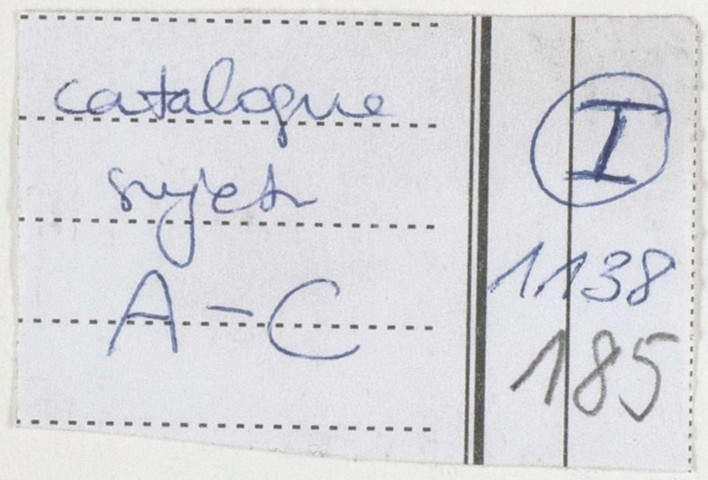 catalogue
sujets
A-C
I
1138
185